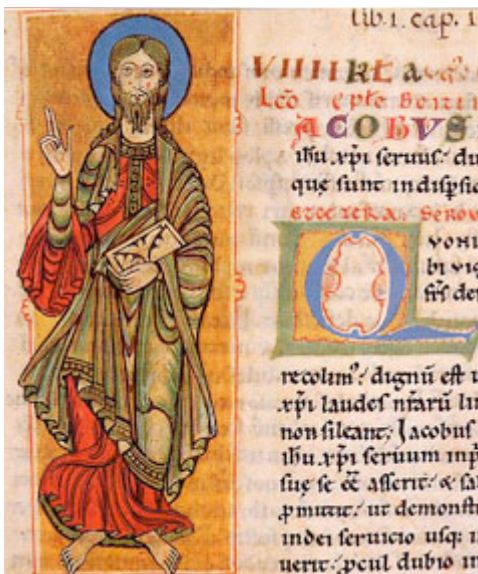 lib. 1. cap. 1
VIIII KL A
Lcō eplē
ACOBVS
ihu xpi seruus. du
quę sunt in dispsio
SERMO
Q VONI
bi uig
frs de
recolim᾽. dignū est u
xpi laudes nrarū lin
non sileant; Jacobus
ihu xpi seruum inp
suę se ēē asserit. & sa
pmittit. ut demonst
in dei seruicio usq; i
uerit. pcul dubio in